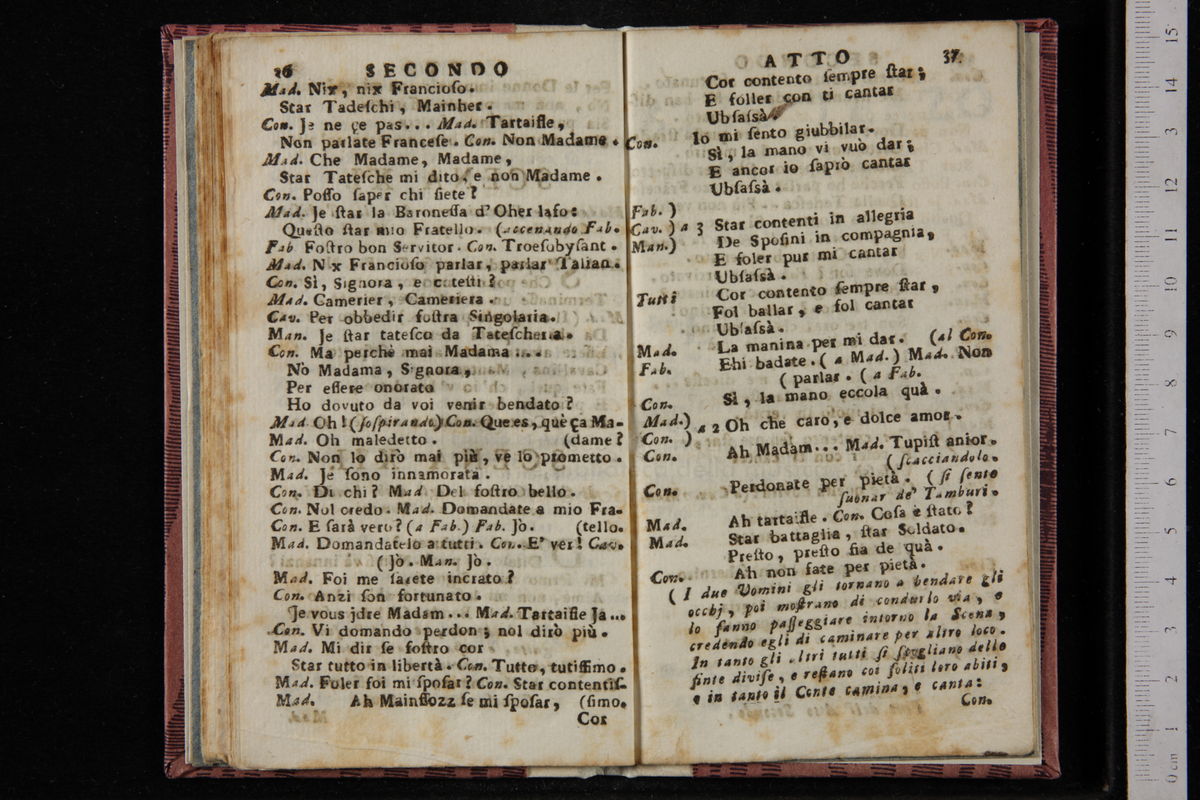 26 SECONDO
Mad. Nix, nix Francioſo.
Star Tadeſchi, Mainher.
Con. Je ne çe pas... Mad. Tartaifle,
Non parlate Franceſe. Con. Non Madame.
Mad. Che Madame, Madame,
Star Tateſche mi dito, e non Madame.
Con. Poſſo ſaper chi ſiete?
Mad. Je ſtar la Baroneſſa d'Oher laſo:
Queſto ſtar mio Fratello. (accenando Fab.
Fab Foſtro bon Servitor. Con. Troeſobyſant.
Mad. Nix Francioſo parlar, parlar Talian.
Con. Sì, Signora, e coteſti?
Mad. Camerier, Cameriera.
Cav. Per obbedir foſtra Singolaria.
Man. Je ſtar tateſco da Tateſcheria.
Con. Ma perchè mai Madama...
No Madama, Signora,
Per eſſere onorato
Ho dovuto da voi venir bendato?
Mad Oh! (ſoſpirando) Con. Que es, què ça Ma-
Mad. Oh maledetto. (dame?
Con. Non lo dirò mai più, ve lo prometto.
Mad. Je ſono innamorata.
Con. Di chi? Mad Del foſtro bello.
Con. Nol credo. Mad. Domandate a mio Fra-
Con. E ſarà vero? (a Fab.) Fab. Jò. (tello.
Mad. Domandatelo a tutti. Con. E' ver! Cav.
(Jò. Man. Jò.
Mad. Foi me ſarete incrato?
Con. Anzi ſon fortunato.
Je vous jdre Madam... Mad. Tartaifle Ja...
Con. Vi domando perdon; nol dirò più.
Mad. Mi dir ſe foſtro cor
Star tutto in libertà. Con. Tutto, tutiſſimo.
Mad. Foler foi mi ſpoſar? Con. Star contentiſ-
Mad. Ah Mainſſozz ſe mi ſpoſar, (ſimo.
Cor
ATTO 37
Cor contento ſempre ſtar;
E foller con ti cantar
Ubſaſsà.
Con. Io mi ſento giubbilar.
Sì, la mano vi vuò dar;
E ancor io ſaprò cantar
Ubſaſsà.
Fab. )
Cav. ) a 3 Star contenti in allegria
Man.) De Spoſini in compagnia,
E foler pur mi cantar
Ubſaſsà.
Tutti Cor contento ſempre ſtar,
Fol ballar, e fol cantar
Ubſaſsà.
Mad. La manina per mi dar. (al Con.
Fab. Ehi badate. (a Mad.) Mad. Non
(parlar. (a Fab.
Con. Sì, la mano eccola quà.
Mad.)
Con. ) a 2 Oh che caro, e dolce amor.
Con. Ah Madam... Mad. Tupiſt anior.
(ſcacciandolo.
Con. Perdonate per pietà. (ſi ſente
ſuonar de' Tamburi.
Mad. Ah tartaifle. Con. Coſa è ſtato?
Mad. Star battaglia, ſtar Soldato.
Preſto, preſto fia de quà.
Con. Ah non fate per pietà.
(I due Uomini gli tornano a bendare gli
occhj, poi moſtrano di condurlo via, e
lo fanno paſſeggiare intorno la Scena,
credendo egli di caminare per altro loco.
In tanto gli altri tutti ſi ſpogliano delle
finte diviſe, e reſtano coi ſoliti loro abiti,
e in tanto il Conte camina, e canta:
Con.
0 cm 1 2 3 4 5 6 7 8 9 10 11 12 13 14 15